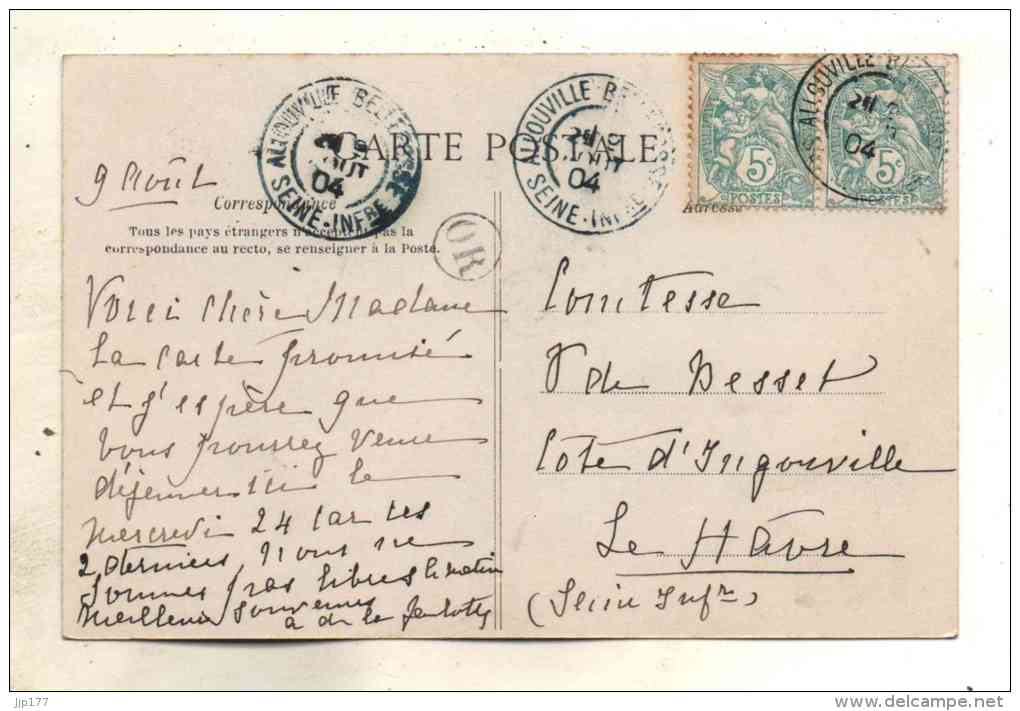 CARTE POSTALE
ALLOUVILLE BELLEFOSSE
AOUT
04
SEINE-INFRE
ALLOUVILLE BELLEFOSSE
AOUT
04
SEINE-INFRE
ALLOUVILLE
04
5c
POSTES
5c
POSTES
9 Août
Correspondance
Tous les pays étrangers n'acceptent pas la
correspondance au recto, se renseigner à la Poste.
OR
Adresse
Voici Chère Madame
la carte promise
et j'espère que
vous pourrez venir
déjeuner ici le
mercredi 24 car les
2 derniers nous ne
sommes pas libres le matin
meilleurs souvenirs
Comtesse
V de Besset
Côte d'Ingouville
Le Hâvre
(Seine Infre)
jjp177
www.delcampe.net